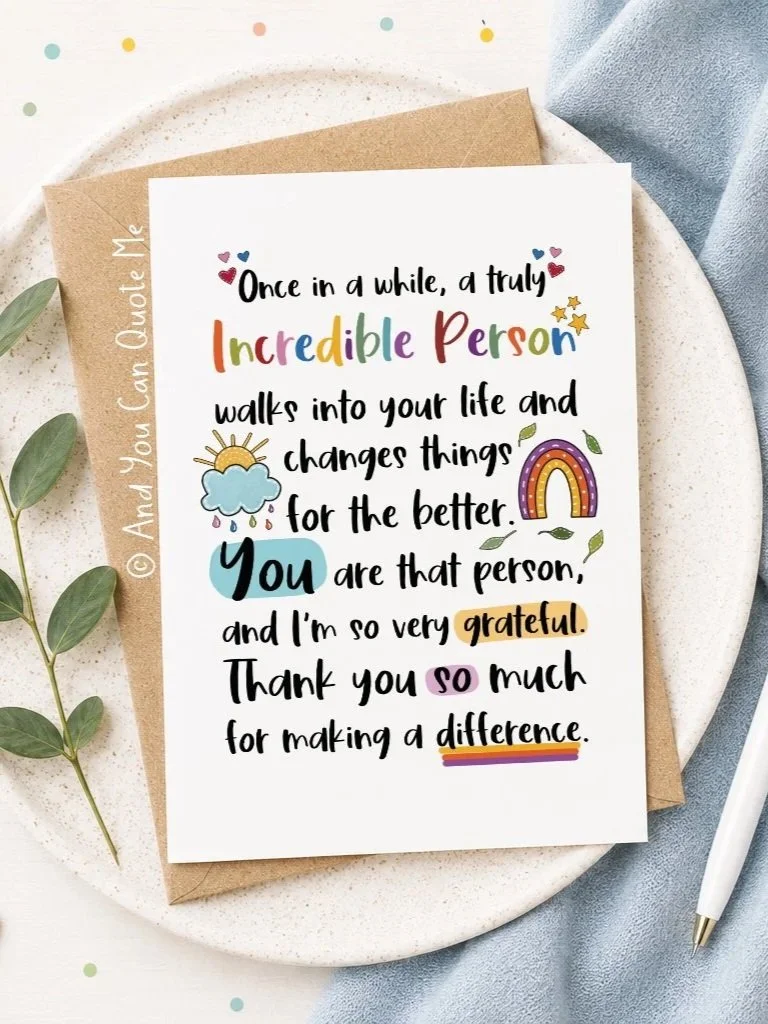 Once in a while, a truly
Incredible Person
walks into your life and
changes things
for the better.
You are that person,
and I'm so very grateful.
Thank you so much
for making a difference.
© And You Can Quote Me